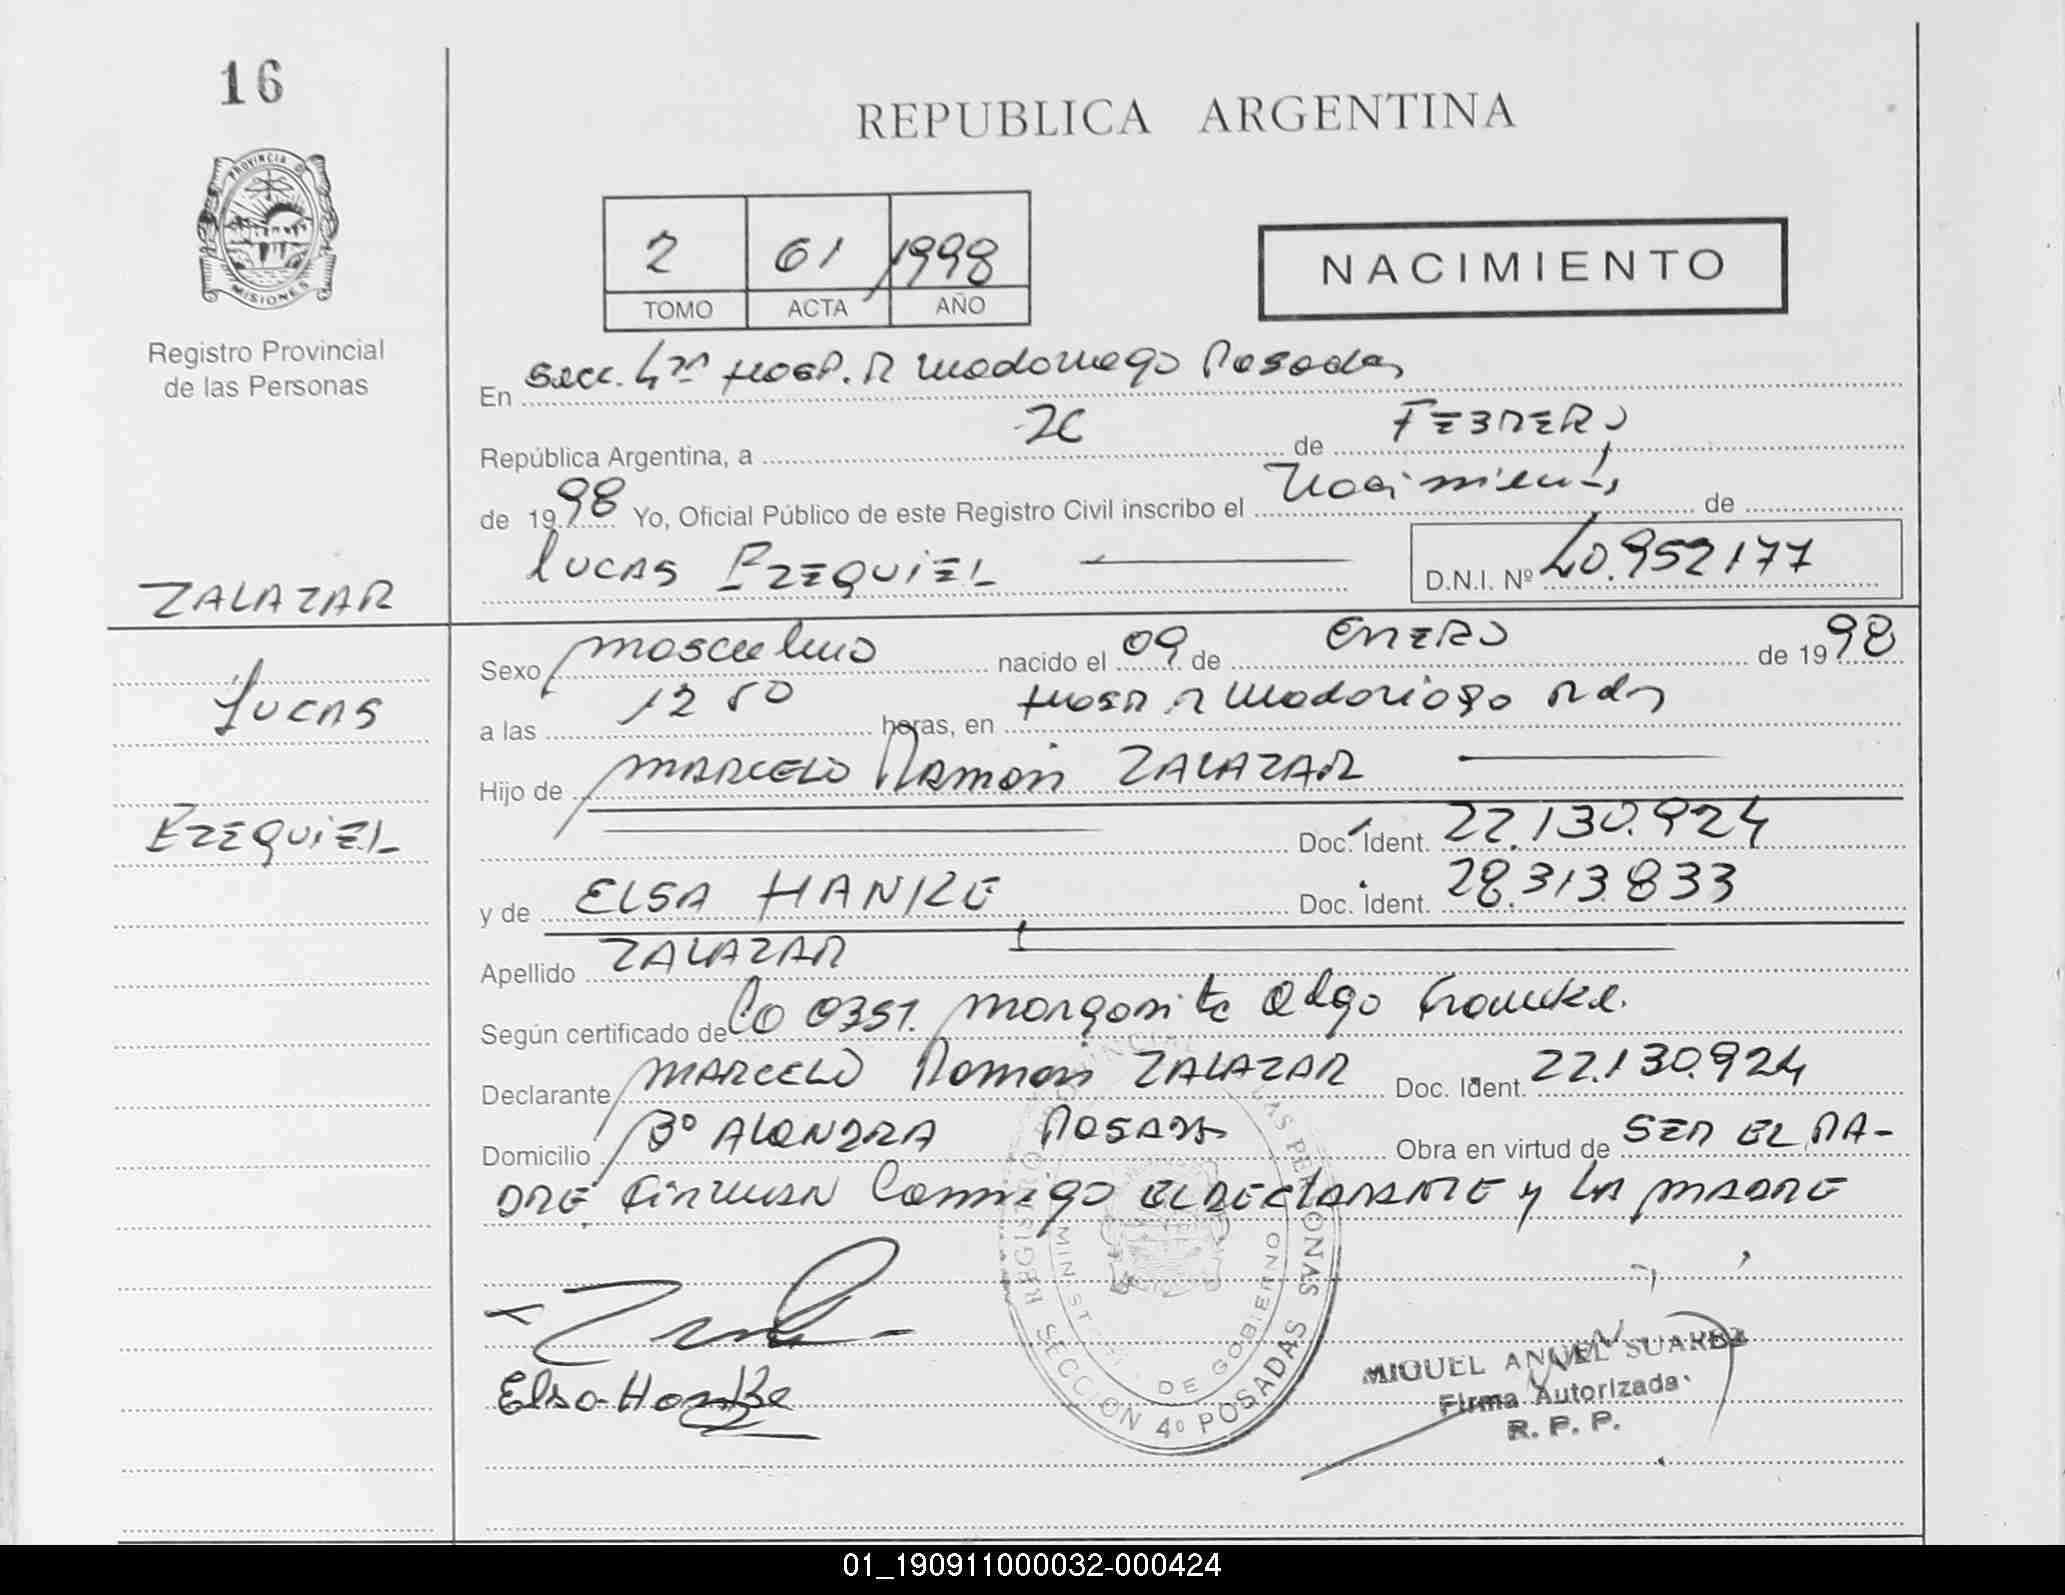 16
REPUBLICA ARGENTINA
PROVINCIA D
MISIONES
Registro Provincial
de las Personas
2 61 1998
TOMO ACTA AÑO
NACIMIENTO
En Secc. 4ta Hosp. R Madariaga Posadas
República Argentina, a 20 de FEBRERO
de 1998 Yo, Oficial Público de este Registro Civil inscribo el Nacimiento de
LUCAS EZEQUIEL D.N.I. Nº 40.952177
ZALAZAR
LUCAS
EZEQUIEL
Sexo masculino nacido el 09 de ENERO de 1998
a las 12 50 horas, en Hosp R Madariaga Pdas
Hijo de MARCELO Ramon ZALAZAR
Doc. Ident. 22.130.924
y de ELSA HANKE Doc. Ident. 28.313.833
Apellido ZALAZAR
Según certificado de Co 0351. Margarita Olga
Declarante MARCELO Ramon ZALAZAR Doc. Ident. 22.130.924
Domicilio Bº ALONDRA POSADAS Obra en virtud de SER EL PA-
DRE. Firman Conmigo EL DECLARANTE y LA MADRE
Elsa Hanke
SECCION 4º POSADAS
DE GOBIERNO
MIGUEL ANGEL SUAREZ
Firma Autorizada
R. P. P.
01_190911000032-000424